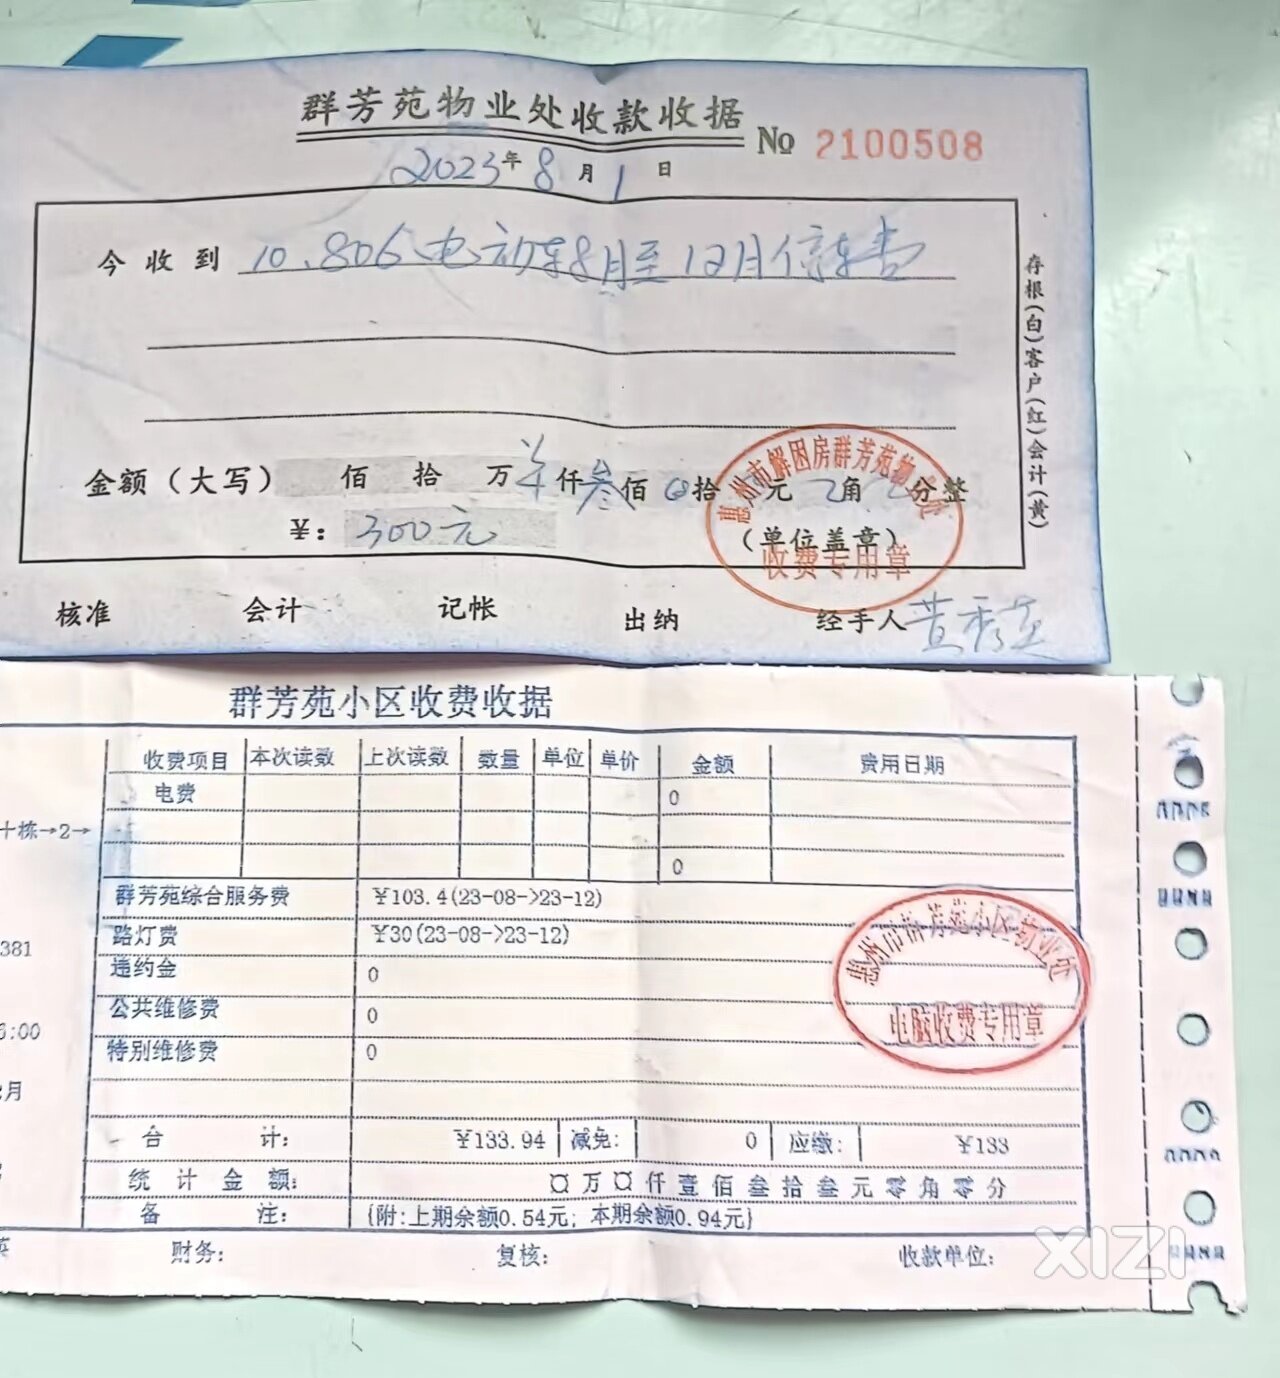 群芳苑物业处收款收据 № 2100508
2023年8月1日
今收到 10.806电动车8月至12月停车费
金额(大写) 佰 拾 万 仟叁佰 拾 元 角 分整
¥: 300元 (单位盖章)
惠州市解困房群芳苑物业处
收费专用章
核准 会计 记帐 出纳 经手人
存根(白)客户(红)会计(黄)
群芳苑小区收费收据
收费项目 本次读数 上次读数 数量 单位 单价 金额 费用日期
电费 0
十栋→2→
0
群芳苑综合服务费 ¥103.4(23-08->23-12)
路灯费 ¥30(23-08->23-12)
381
违约金 0
公共维修费 0
6:00
特别维修费 0
月
惠州市群芳苑小区物业处
电脑收费专用章
合 计: ¥133.94 减免: 0 应缴: ¥133
统计金额: ¤万¤仟壹佰叁拾叁元零角零分
备 注: {附:上期余额0.54元; 本期余额0.94元}
财务: 复核: 收款单位:
XIZI